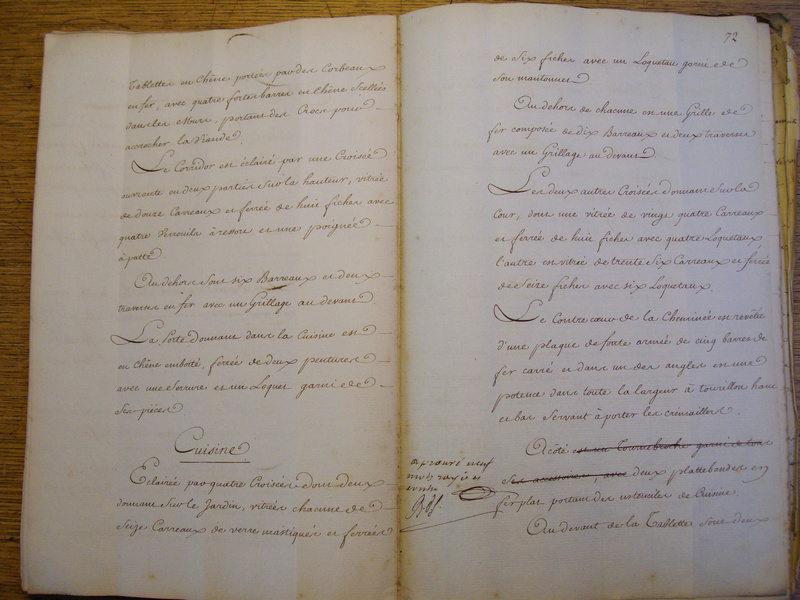 Tablettes en Chêne portées par des Corbeaux
en fer, avec quatre fortes barres en Chêne Scellées
dans les Murs, portant des Crocs pour
accrocher la Viande.
Le Corridor est éclairé par une Croisée
ouvrante en deux parties sur la hauteur, vitrée
de douze Carreaux et ferrée de huit fiches avec
quatre Verrouils à ressort et une poignée
à patte.
Au dehors sont six Barreaux et deux
traverses en fer avec un Grillage au devant.
La Porte donnant dans la Cuisine est
en Chêne emboîté, ferrée de deux pentures
avec une Serrure et un Loquet garni de
Ses pièces.
Cuisine
Eclairée par quatre Croisées dont deux
donnant sur le Jardin, vitrées chacune de
Seize Carreaux de verre mastiqués et ferrées
72
de Six fiches avec un Loqueteau garni de
Son mantonnet.
Au dehors de chacune est une Grille de
fer composée de dix Barreaux et deux traverses
avec un Grillage au devant.
Les deux autres Croisées donnant sur la
Cour, dont une vitrée de vingt quatre Carreaux
et ferrée de huit fiches avec quatre Loqueteaux
l'autre est vitrée de trente Six Carreaux et ferrée
de Seize fiches avec six Loqueteaux.
Le Contre cœur de la Cheminée est revêtu
d'une plaque de fonte armée de cinq barres de
fer carré et dans un des angles est une
potence dans toute la largeur à tourillon haut
et bas servant à porter les crémaillers.
A côté est un Tournebroche garni de tous
ses accessoires, avec deux plattebandes en
fer plat portant des ustensiles de Cuisine.
Au devant de la Tablette sont deux
approuvé neuf
mots rayés et